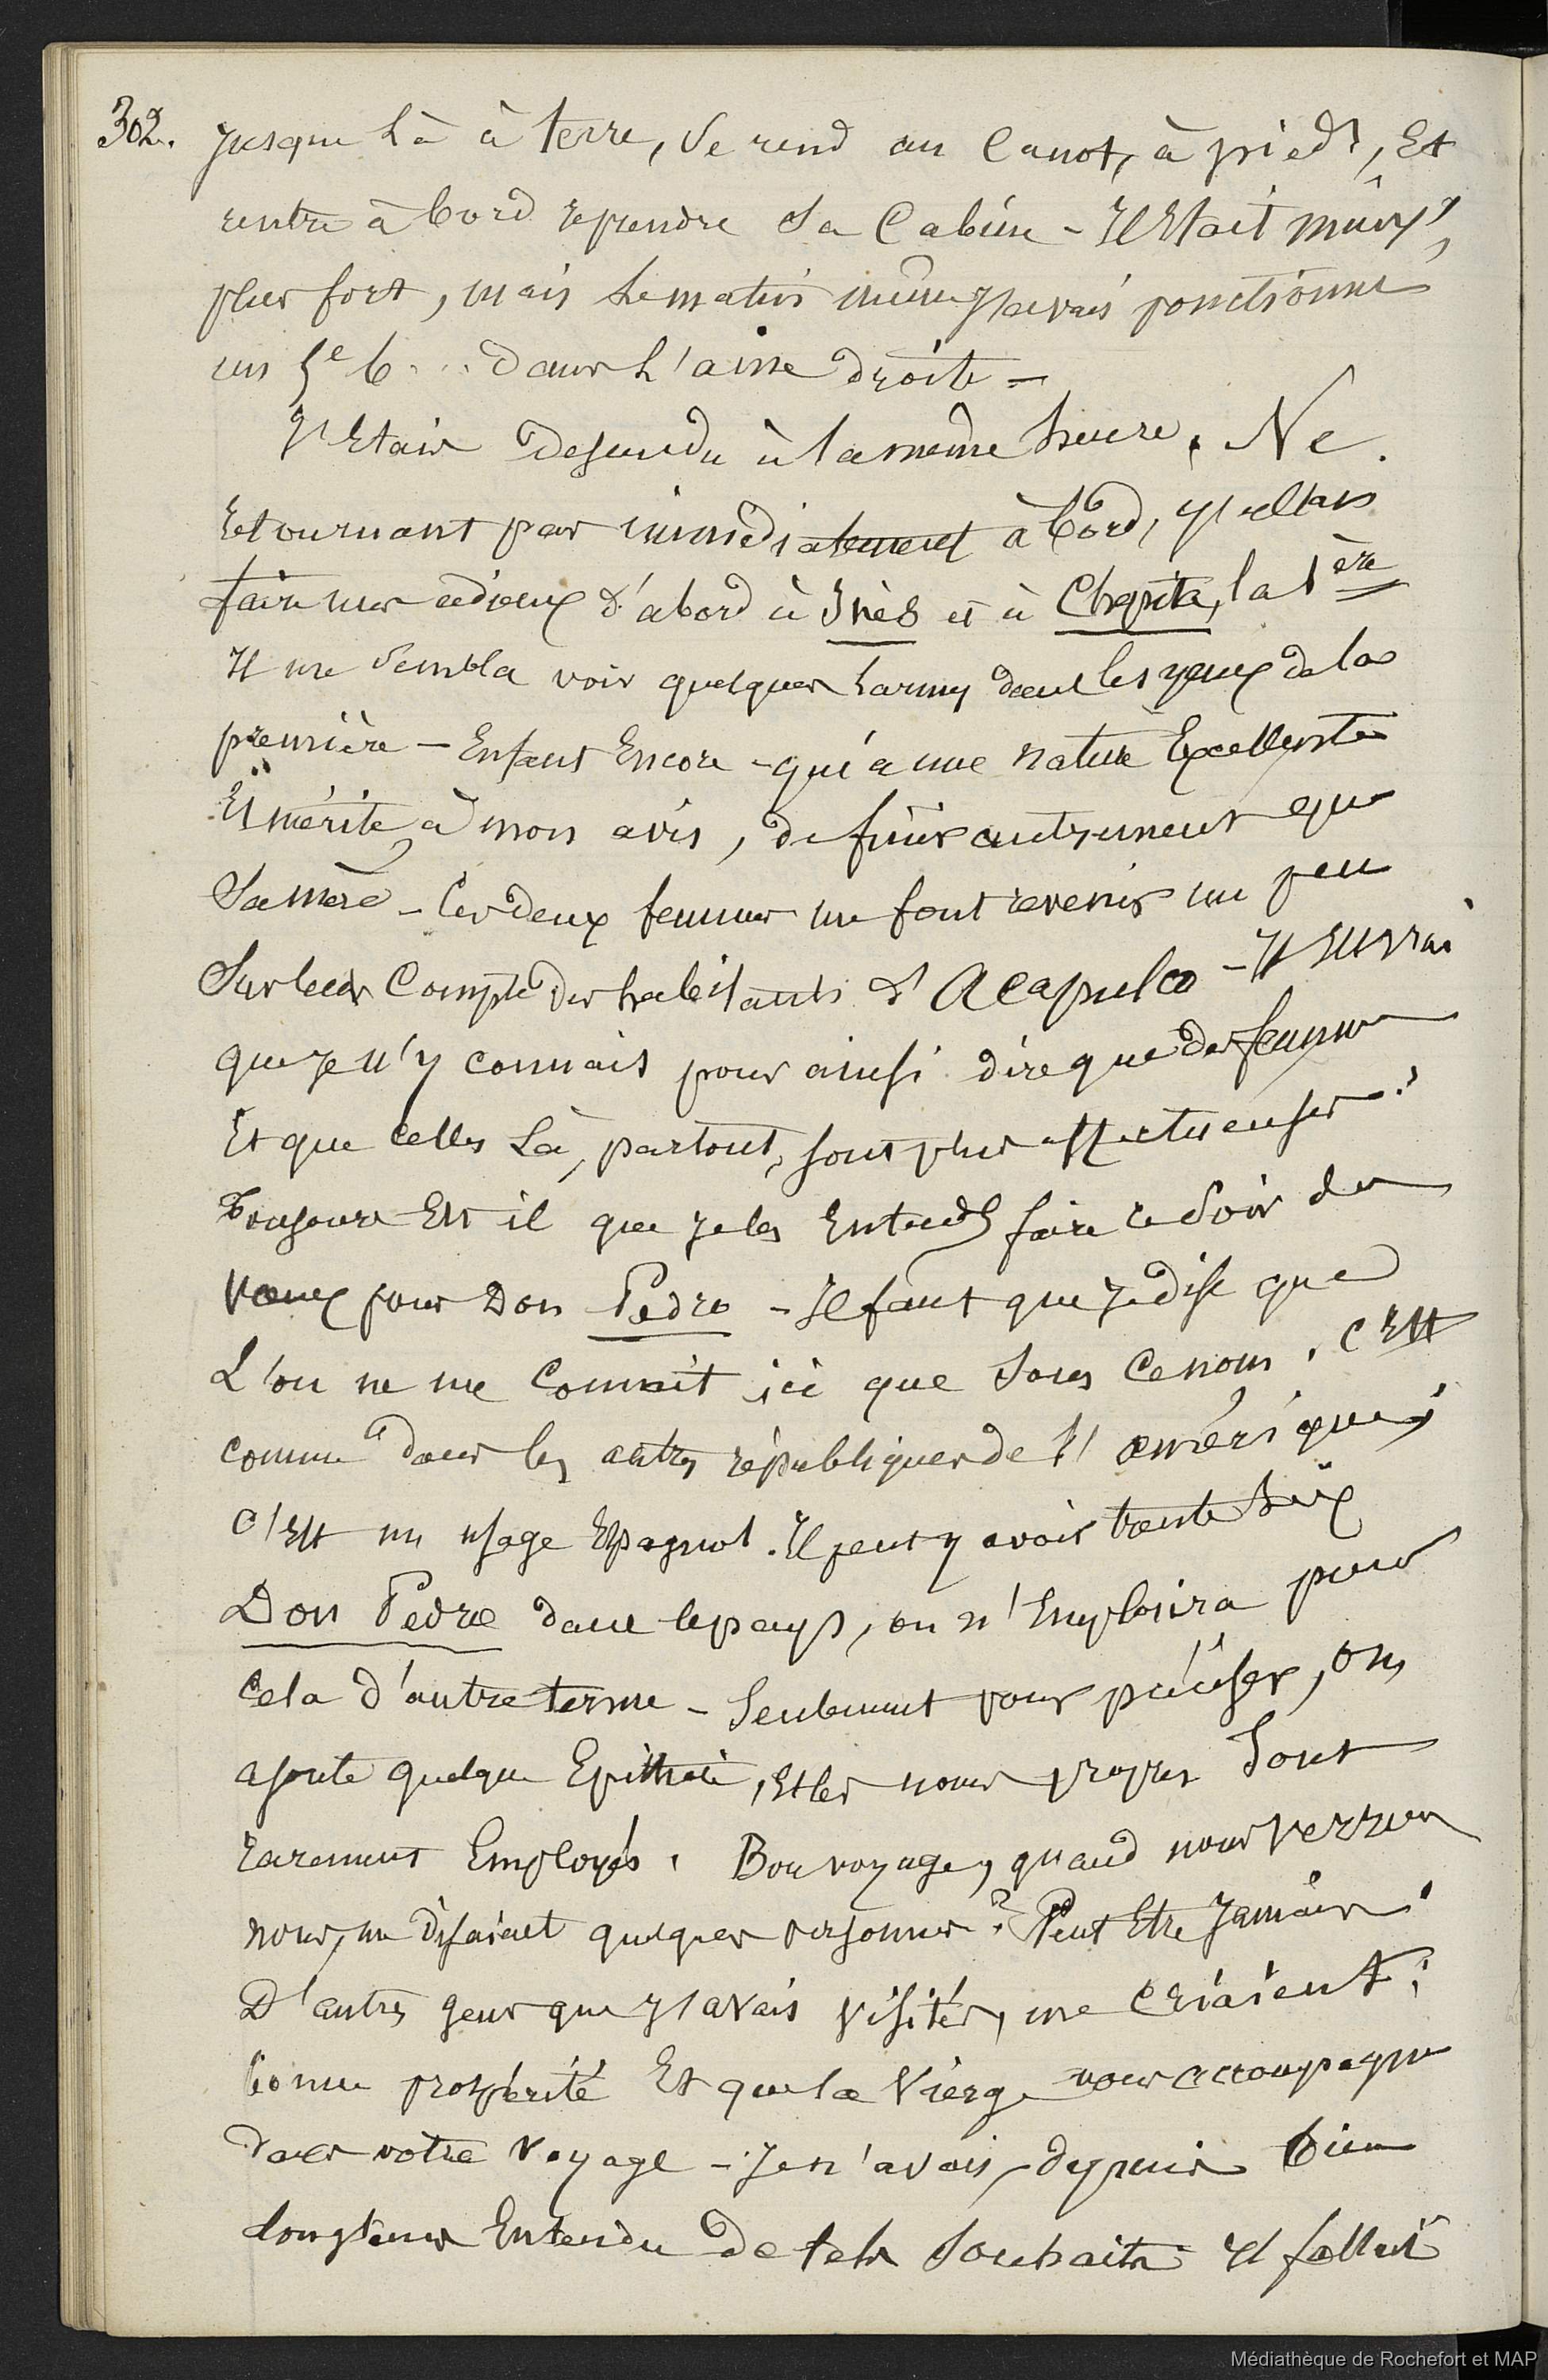 302. jusque là à terre, se rend au Canot, à pieds, Et
rentre à bord reprendre sa Cabine - Il Etait mieux,
plus fort, mais le matin même j'avais ponctionné
un b... dans l'aine droite -
J'Etais descendu à la même heure. Ne
Retournant pas immédiatement à bord, j'allais
faire mes adieux d'abord à Inès et à Chepita, la 1ère
Il me sembla voir quelques larmes dans les yeux de la
première - Enfant Encore - qui a une nature Excellente
Et mérite à mon avis, de finir autrement que
Sa mère - Ces deux femmes me font revenir un peu
Sur leur Compte des habitants d'Acapulco - Il Est vrai
que je n'y connais pour ainsi dire que des femmes
Et que celles là, partout, sont plus affectueuses.
Toujours Est il que je les Entends faire ce soir des
Vœux pour Don Pedro - Il faut que je dise que
L'on ne me Connait ici que sous ce nom, c'Est
comme dans les autres républiques de l'amérique,
C'Est un usage Espagnol. Il peut y avoir trente six
Don Pedre dans le pays, on n'Emploira pour
Cela d'autre terme - Seulement pour préciser, on
ajoute quelque Epithète, Et les noms propres sont
rarement Employés. Bon voyage, quand nous verrons
nous, me disaient quelques personnes ? Peut Etre Jamais !
D'autres gens que j'avais visités, me criaient :
bonne prospérité Et que la Vierge vous accompagne
dans votre Voyage - Je n'avais, depuis bien
longtems Entendu de tels souhaits. Il fallait
Médiathèque de Rochefort et MAP